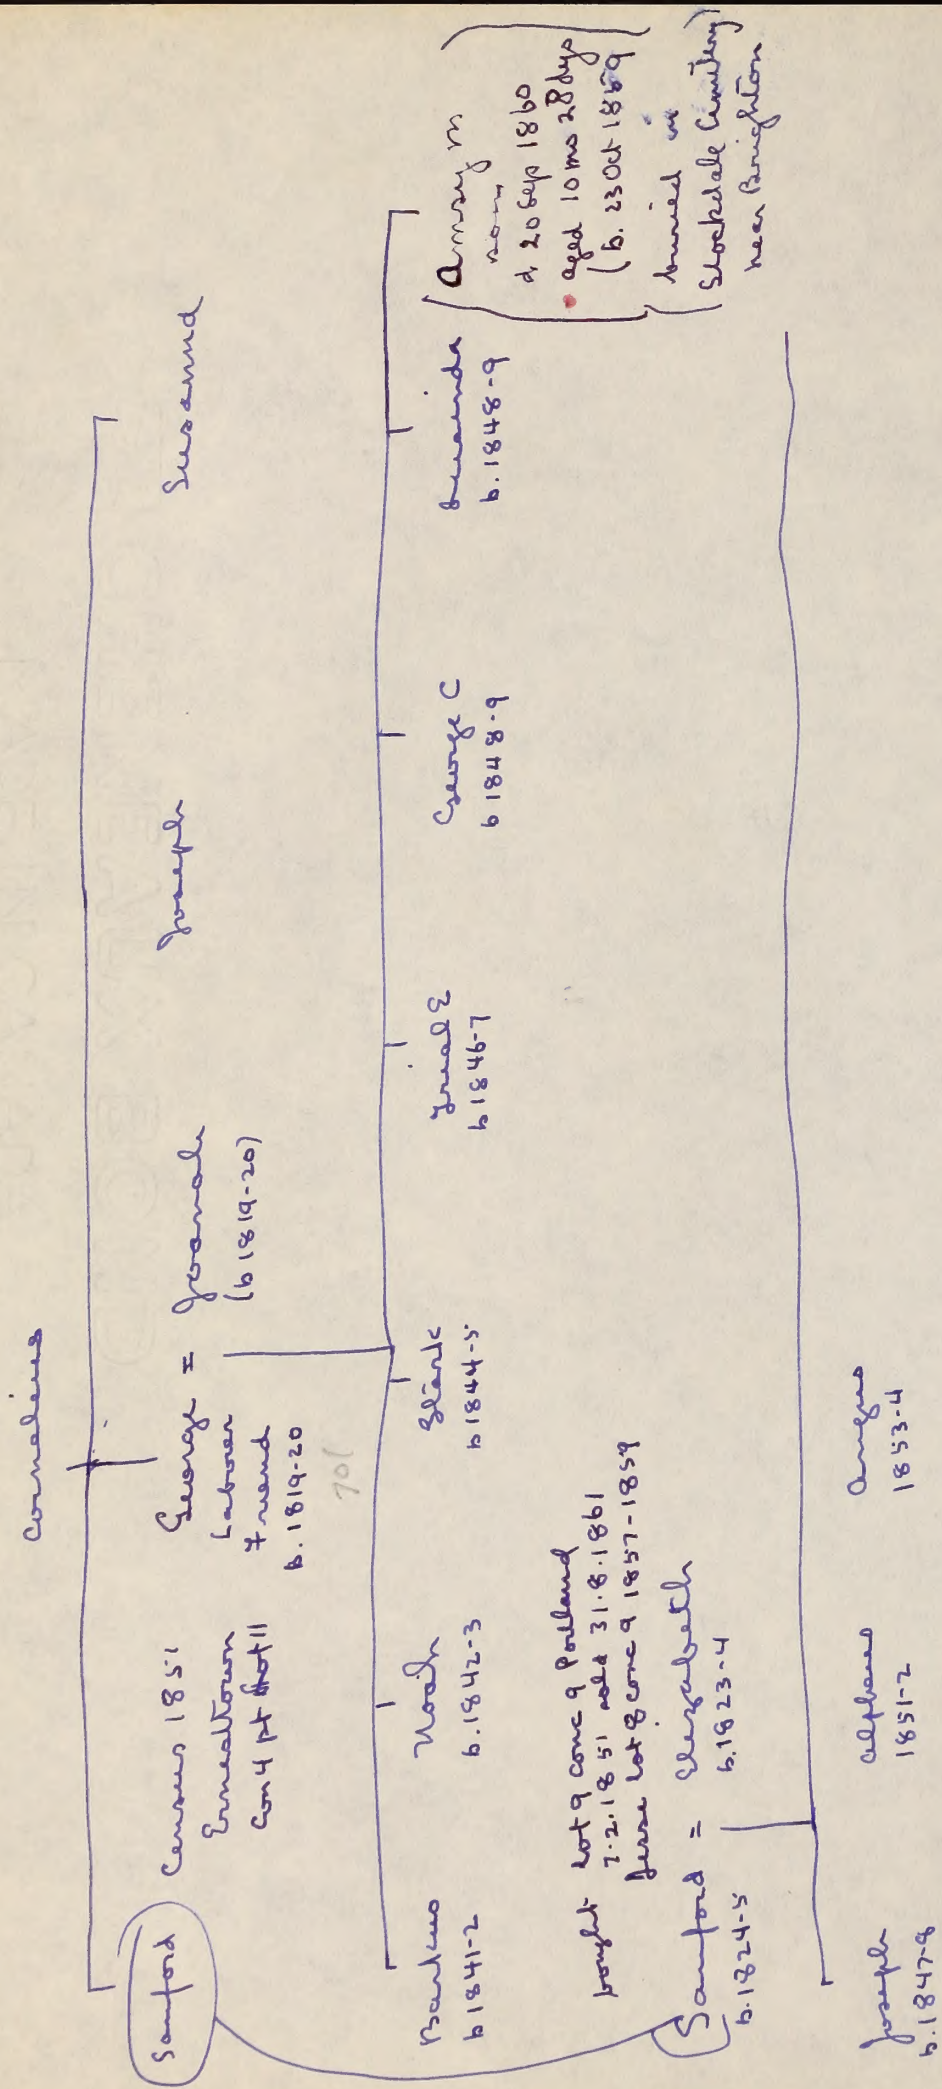 Cornelius
Sanford
Census 1851
Ernesttown
Con 4 pt Lot 11
George =
Laborer
Friend
b. 1819-20
Joanah
(b 1819-20)
Joseph
Susanna
701
Barkus
b 1841-2
Noah
b. 1842-3
b 1844-5
b 1846-7
George C
b 1848-9
b. 1848-9
Amsy m
son
d 20 Sep 1860
aged 10 mo 28 dys
(b. 23 Oct 1859
buried in
Stockdale Cemetery)
near Brighton
bought Lot 9 conc 9 Portland
7.2.1851 sold 31.8.1861
Jesse Lot 8 conc 9 1857-1859
Sanford = Elezabeth
b. 1824-5
b. 1823-4
Joseph
b. 1847-8
Alpheus
1851-2
Angus
1853-4